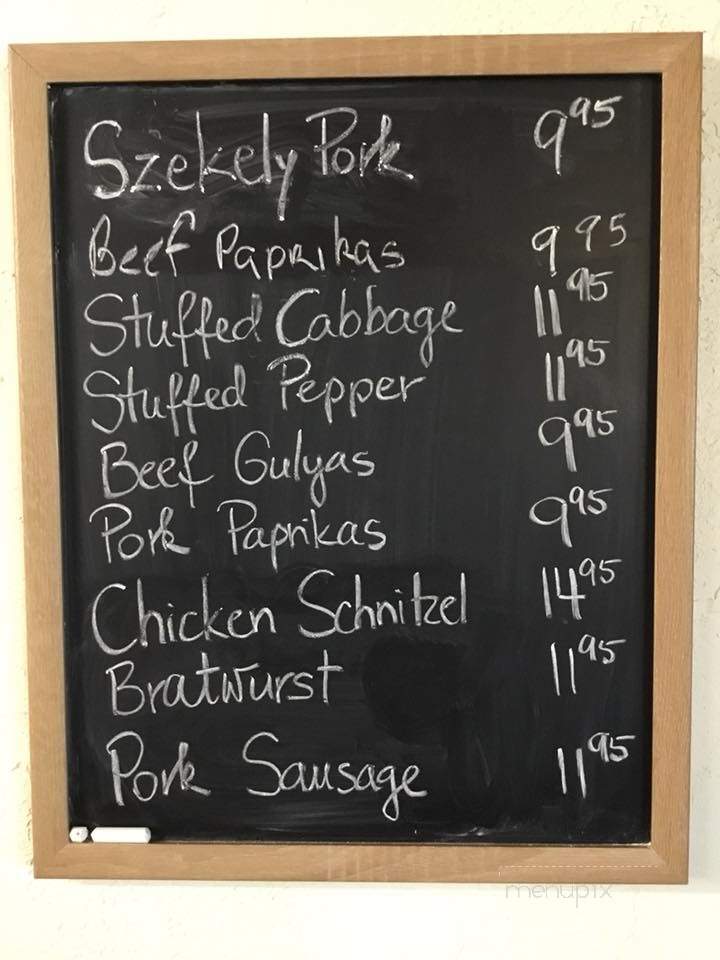 Szekely Pork 9 95
Beef Paprikas 9 95
Stuffed Cabbage 11 95
Stuffed Pepper 11 95
Beef Gulyas 9 95
Pork Paprikas 9 95
Chicken Schnitzel 14 95
Bratwurst 11 95
Pork Sausage 11 95
menupix